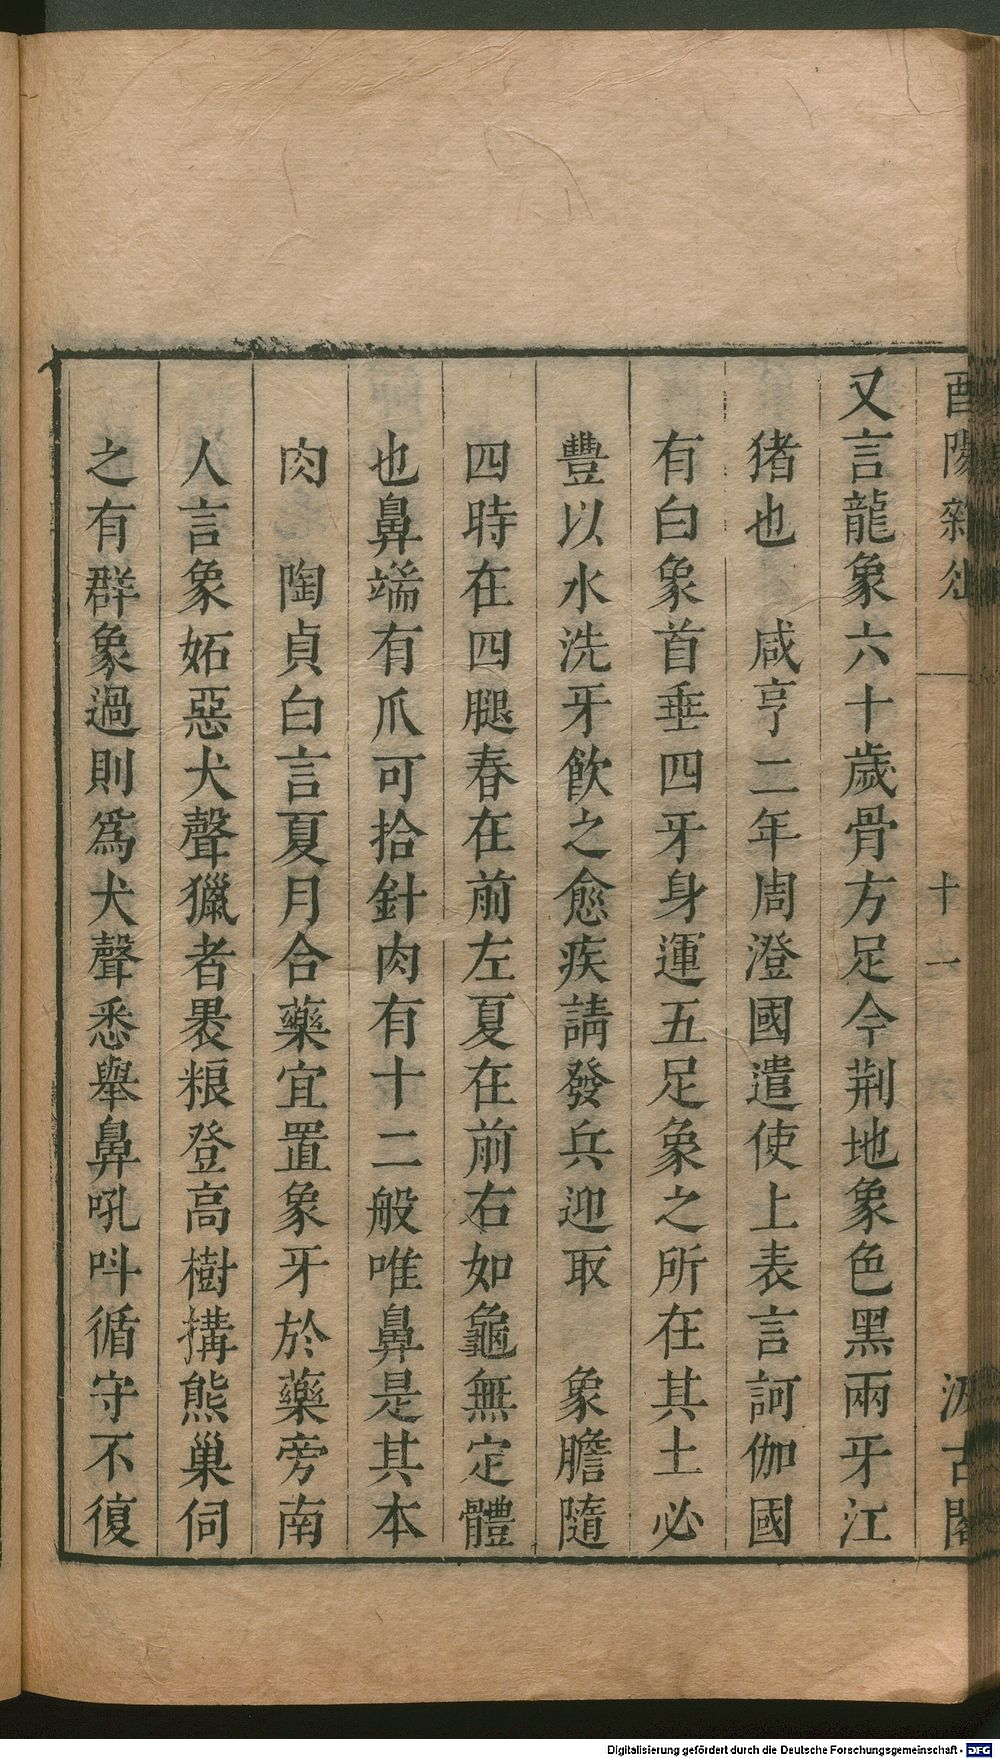 酉陽雜俎 十一 汲古閣
又言龍象六十歲骨方足今荆地象色黑兩牙江
猪也 咸亨二年周澄國遣使上表言訶伽國
有白象首垂四牙身運五足象之所在其土必
豐以水洗牙飲之愈疾請發兵迎取 象膽隨
四時在四腿春在前左夏在前右如龜無定體
也鼻端有爪可拾針肉有十二般唯鼻是其本
肉 陶貞白言夏月合藥宜置象牙於藥旁南
人言象妬惡犬聲獵者裹粮登高樹搆熊巢伺
之有群象過則爲犬聲悉舉鼻吼呌循守不復
Digitalisierung gefördert durch die Deutsche Forschungsgemeinschaft - DFG